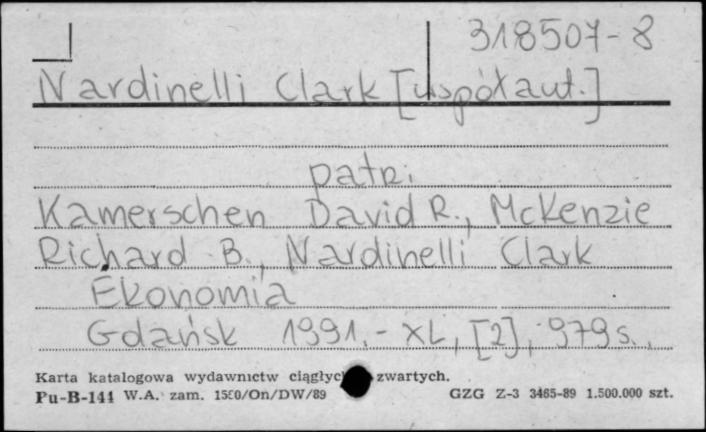 318507-8
Nardinelli Clark [współaut.]
patrz:
Kamerschen David R., McKenzie
Richard B., Nardinelli Clark
Ekonomia
Gdańsk 1991.- XL, [2], 979 s.
Karta katalogowa wydawnictw ciągłyc zwartych.
Pu-B-141 W.A. zam. 1550/On/DW/89 GZG Z-3 3465-89 1.500.000 szt.